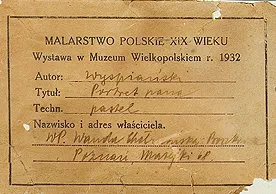 MALARSTWO POLSKIE XIX WIEKU
Wystawa w Muzeum Wielkopolskiem r. 1932
Autor: Wyspiański
Tytuł: Portret pana
Techn. pastel
Nazwisko i adres właściciela.
WP. Wanda
Poznań Matejki